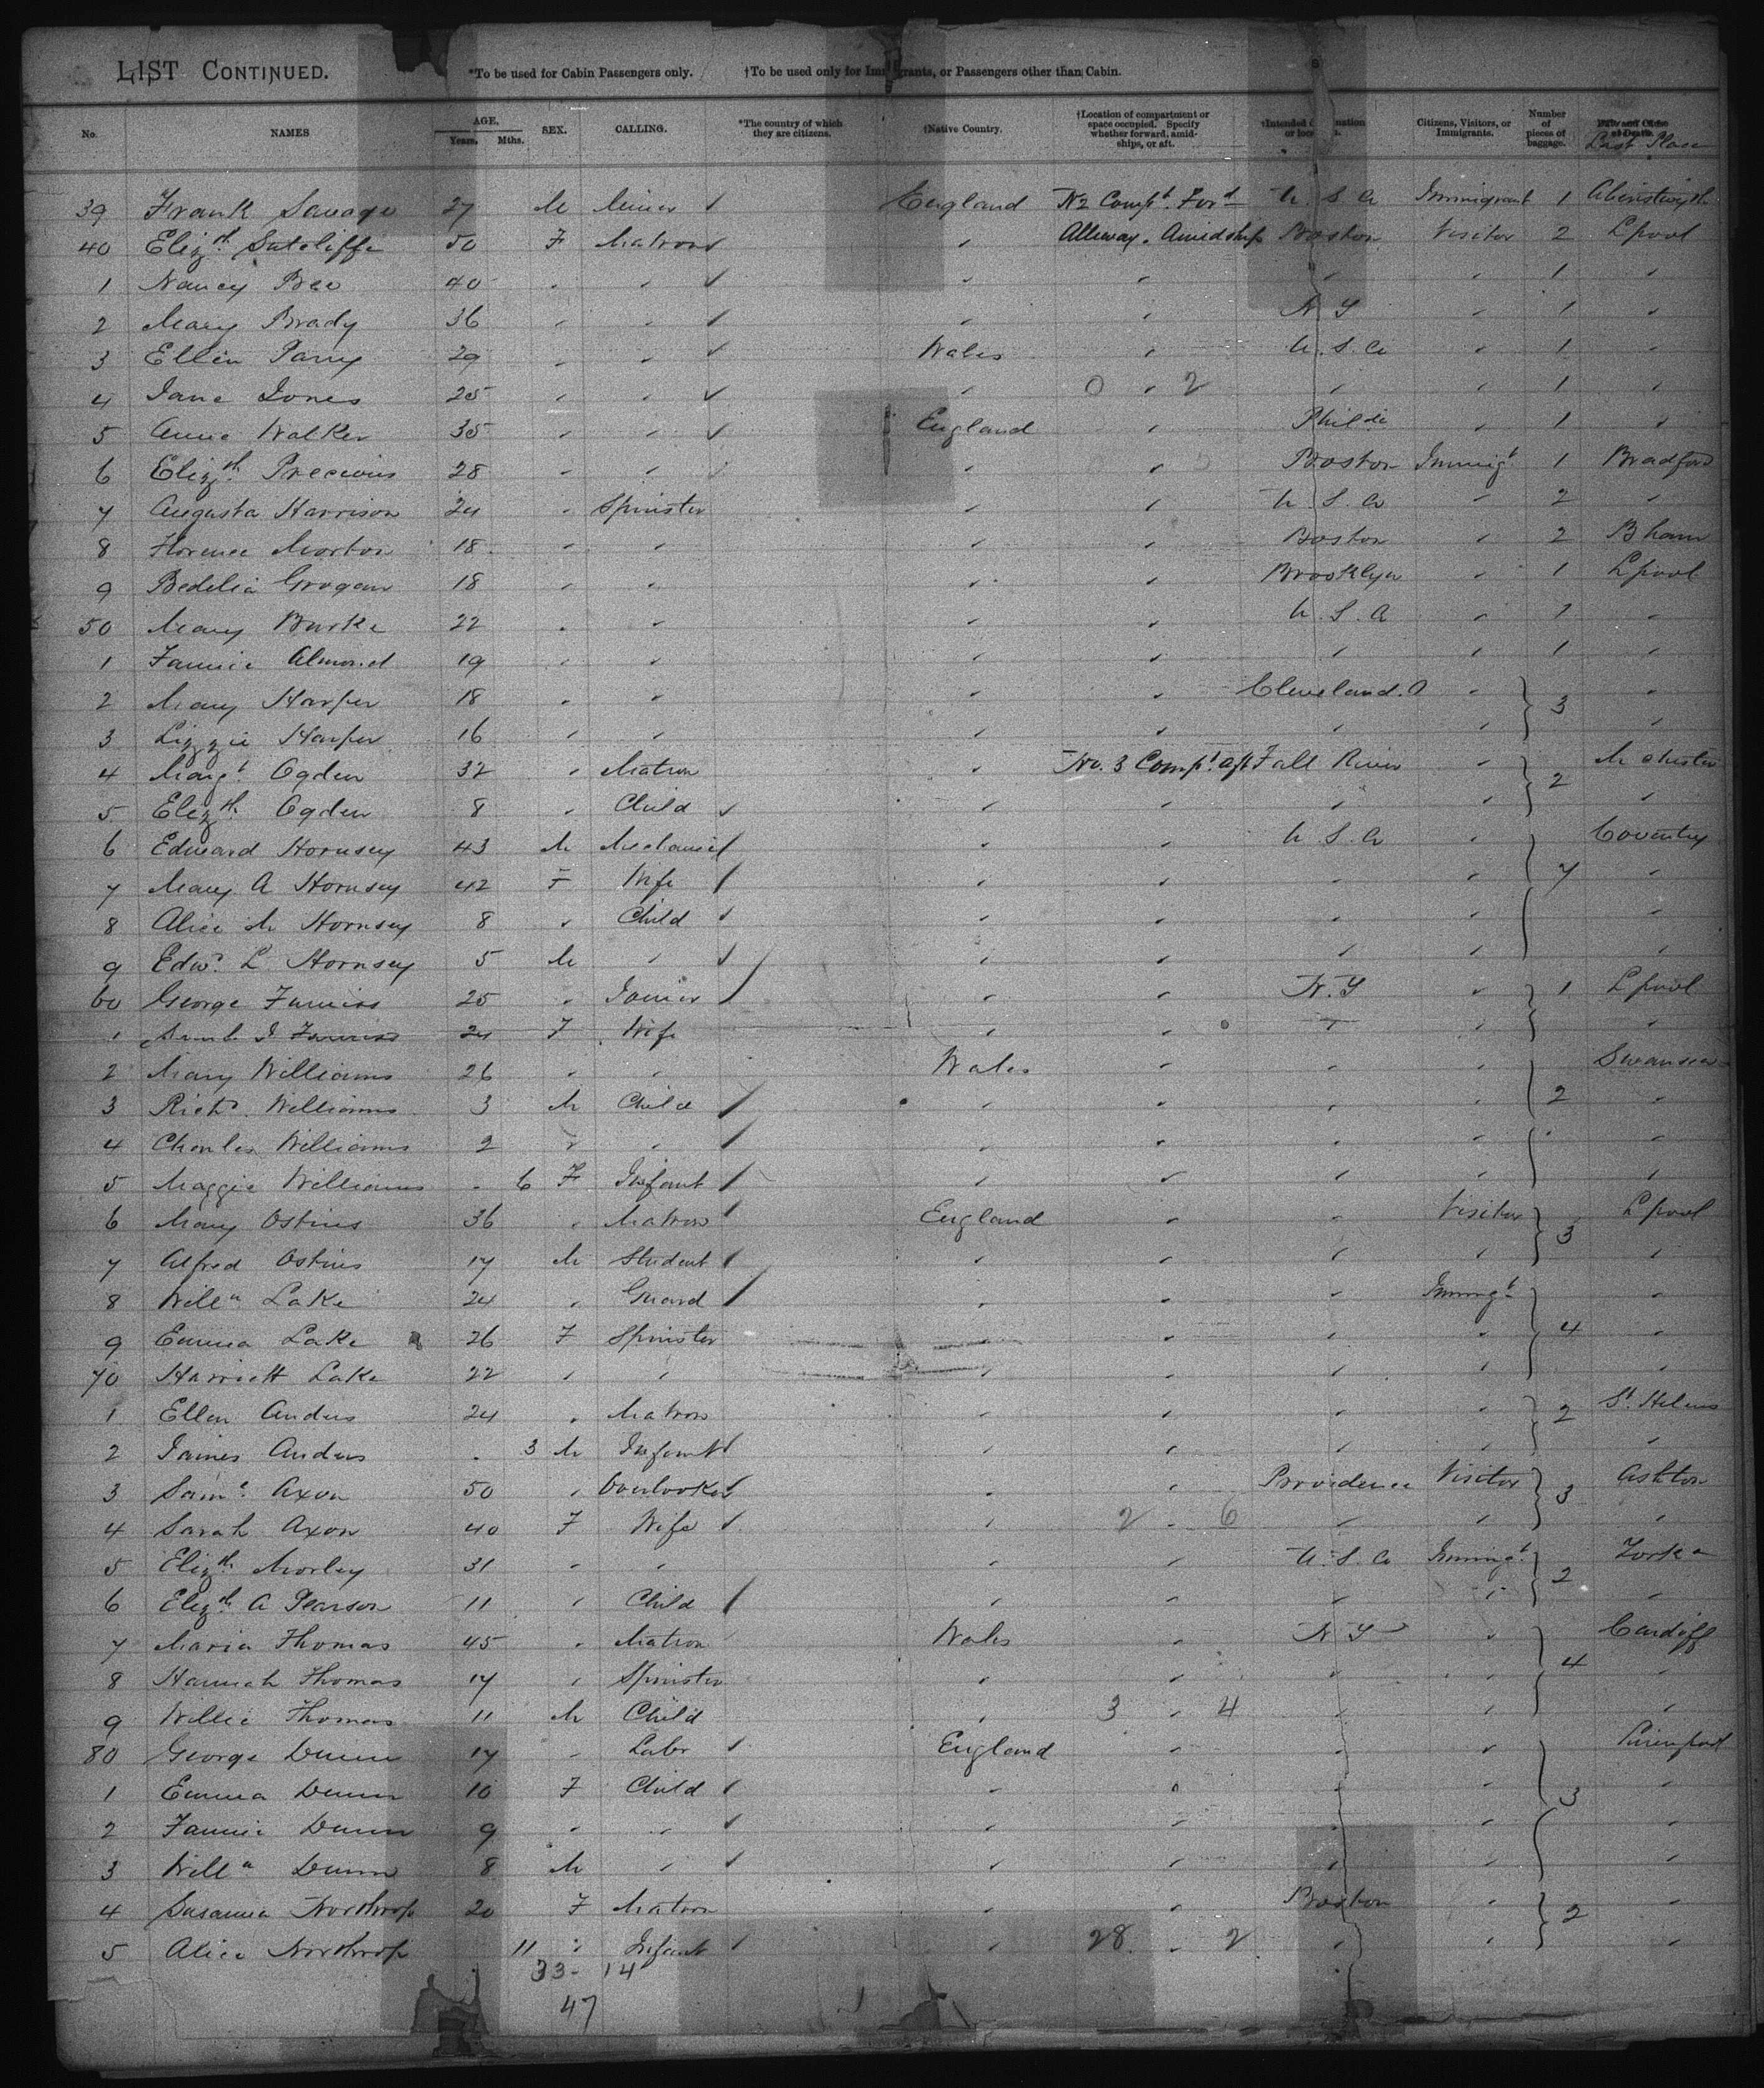 LIST CONTINUED. *To be used for Cabin Passengers only. †To be used only for Immigrants, or Passengers other than Cabin.
No. NAMES AGE, Years. Mths. SEX. CALLING. *The country of which they are citizens. †Native Country. †Location of compartment or space occupied. Specify whether forward, amidships, or aft. †Intended destination Citizens, Visitors, or Immigrants. Number of pieces of baggage. Last Place
39 Frank Savage 27 M Miner ✓ England No2 Compt. Ford U.S.A Immigrant 1
40 Elizth Sutcliffe 50 F Matron ✓ " Alleway. Amidship Boston Visitor 2 Lpool
1 Nancy Bee 40 " " ✓ " " " " 1 "
2 Mary Brady 36 " " ✓ " " N Y " 1 "
3 Ellen Parry 29 " " ✓ Wales " U.S.A " 1 "
4 Jane Jones 25 " " ✓ " 0 " 2 " " 1 "
5 Annie Walker 35 " " ✓ England " Philda " 1 "
6 Elizth Precious 28 " " " " Boston Immigt 1 Bradford
7 Augusta Harrison 24 " Spinster " " U.S.A " 2 "
8 Florence Morton 18 " " " " Boston " 2 Bham
9 Bedelia Grogan 18 " " " " Brooklyn " 1 Lpool
50 Mary Burke 22 " " " " U.S.A " 1 "
1 Fannie Almond 19 " " " " " " 1 "
2 Mary Harper 18 " " " " Cleveland.O " 3 "
3 Lizzie Harper 16 " " " " " " "
4 Margt Ogden 32 " Matron " No. 3 Compt. aft Fall River " 2 Mchester
5 Elizth Ogden 8 " Child ✓ " " " " "
6 Edward Hornsey 43 M Mechanic ✓ " " U.S.A " Coventry
7 Mary A Hornsey 42 F Wife ✓ " " " " 7 "
8 Alice M Hornsey 8 " Child ✓ " " " " "
9 Edwd. L. Hornsey 5 M " ✓ " " " " "
60 George Furniss 25 " Joiner ✓ " " N.Y " 1 Lpool
1 Furniss 24 F Wife " " " " "
2 Mary Williams 26 " " Wales " " " Swansea
3 Richd. Williams 3 M Child ✓ " " " " 2 "
4 Charles Williams 2 " " ✓ " " " " "
5 Maggie Williams - 6 F Infant ✓ " " " " "
6 Mary Ostins 36 " Matron ✓ England " " Visitor 3 Lpool
7 Alfred Ostins 17 M Student ✓ " " " " "
8 Willm Lake 24 " Guard ✓ " " " Immigt "
9 Emma Lake 26 F Spinster " " " " 4 "
70 Harriett Lake 22 " " " " " " "
1 Ellen Anders 24 " Matron " " " " 2 St. Helens
2 James Anders - 3 M Infant ✓ " " " " "
3 Saml. Axon 50 " Overlooker ✓ " " Providence Visitor 3 Ashton
4 Sarah Axon 40 F Wife ✓ " 2 " 6 " " "
5 Elizth Morley 31 " " " " U.S.A Immigt. 2
6 Elizth A Pearson 11 " Child ✓ " " " " "
7 Maria Thomas 45 " Matron Wales " N Y " Cardiff
8 Hannah Thomas 17 " Spinster " " " " 4 "
9 Willie Thomas 11 M Child " 3 " 4 " " "
80 George Dunn 17 " Labr ✓ England " " " Liverpool
1 Emma Dunn 10 F Child ✓ " " " " 3 "
2 Fannie Dunn 9 " " ✓ " " " " "
3 Willm Dunn 8 M " ✓ " " " " "
4 Susanna Northrop 20 F Matron " " Boston " 2 "
5 Alice Northrop 11 " Infant ✓ " 28 " 2 " " "
33 - 14
47